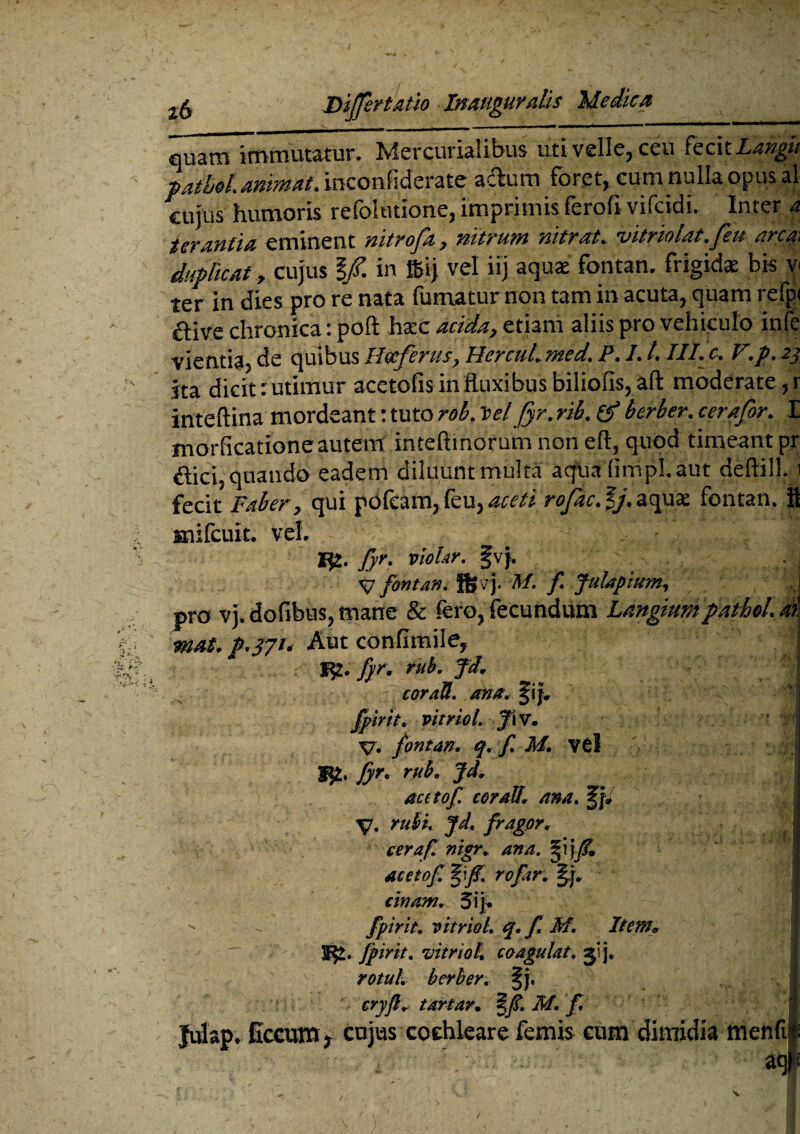 26 Dissertatio Inauguralis Medica
quam immutatur. Mercurialibus uti velle, ceu fecit Langii
pathol. animat. inconsiderate actum foret, cum nulla opus al
cujus humoris resolutione, imprimis serosi viscidi. Inter a
terantia eminent nitrosa, nitrum nitrat. vitriolat. seu arca
duplicat, cujus ℥ß. in ℔ij vel iij aquæ fontan. frigidæ bis v
ter in dies pro re nata sumatur non tam in acuta, quam resp
ctive chronica: post hæc acida, etiam aliis pro vehiculo inse
vientia, de quibus Hœferus, Hercul. med. P. I. l. III. c. V. p. 23
ita dicit: utimur acetosis in fluxibus biliosis, ast moderate, r
intestina mordeant: tuto rob. vel syr. rib. & berber. cerasor. E
morsicatione autem intestinorum non est, quod timeant pr
ctici, quando eadem diluunt multa aqua simpl. aut destill. i
fecit Faber, qui poscam, seu, aceti rosac. ℥j. aquæ fontan. ℔
miscuit. vel.
℞. syr. violar. ℥vj.
▽ fontan. ℔vj. M. f. Julapium,
pro vj. dosibus, mane & sero, secundum Langium pathol. ai
mat. p. 371. Aut consimile,
℞. syr. rub. Jd.
corall. ana. ℥ij.
spirit. vitriol. ʒiv.
▽. fontan. q. s. M. vel
℞. syr. rub. Jd.
acetos. corall. ana. ℥j.
▽. rubi. Jd. fragor.
ceras. nigr. ana. ℥ijß.
acetos. ℥iß. rosar. ℥j.
cinam. ʒij.
spirit. vitriol. q. s. M. Item.
℞. spirit. vitriol. coagulat. ʒij.
rotul. berber. ℥j.
cryst. tartar. ℥ß. M. f.
Julap. siccum, cujus cochleare semis cum dimidia mensu
aq